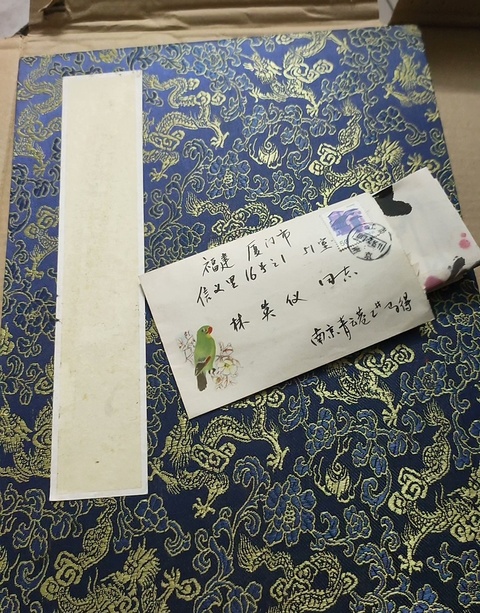 福建 厦门市
信义里 16号之1 51室
林英仪 同志
南京青云巷